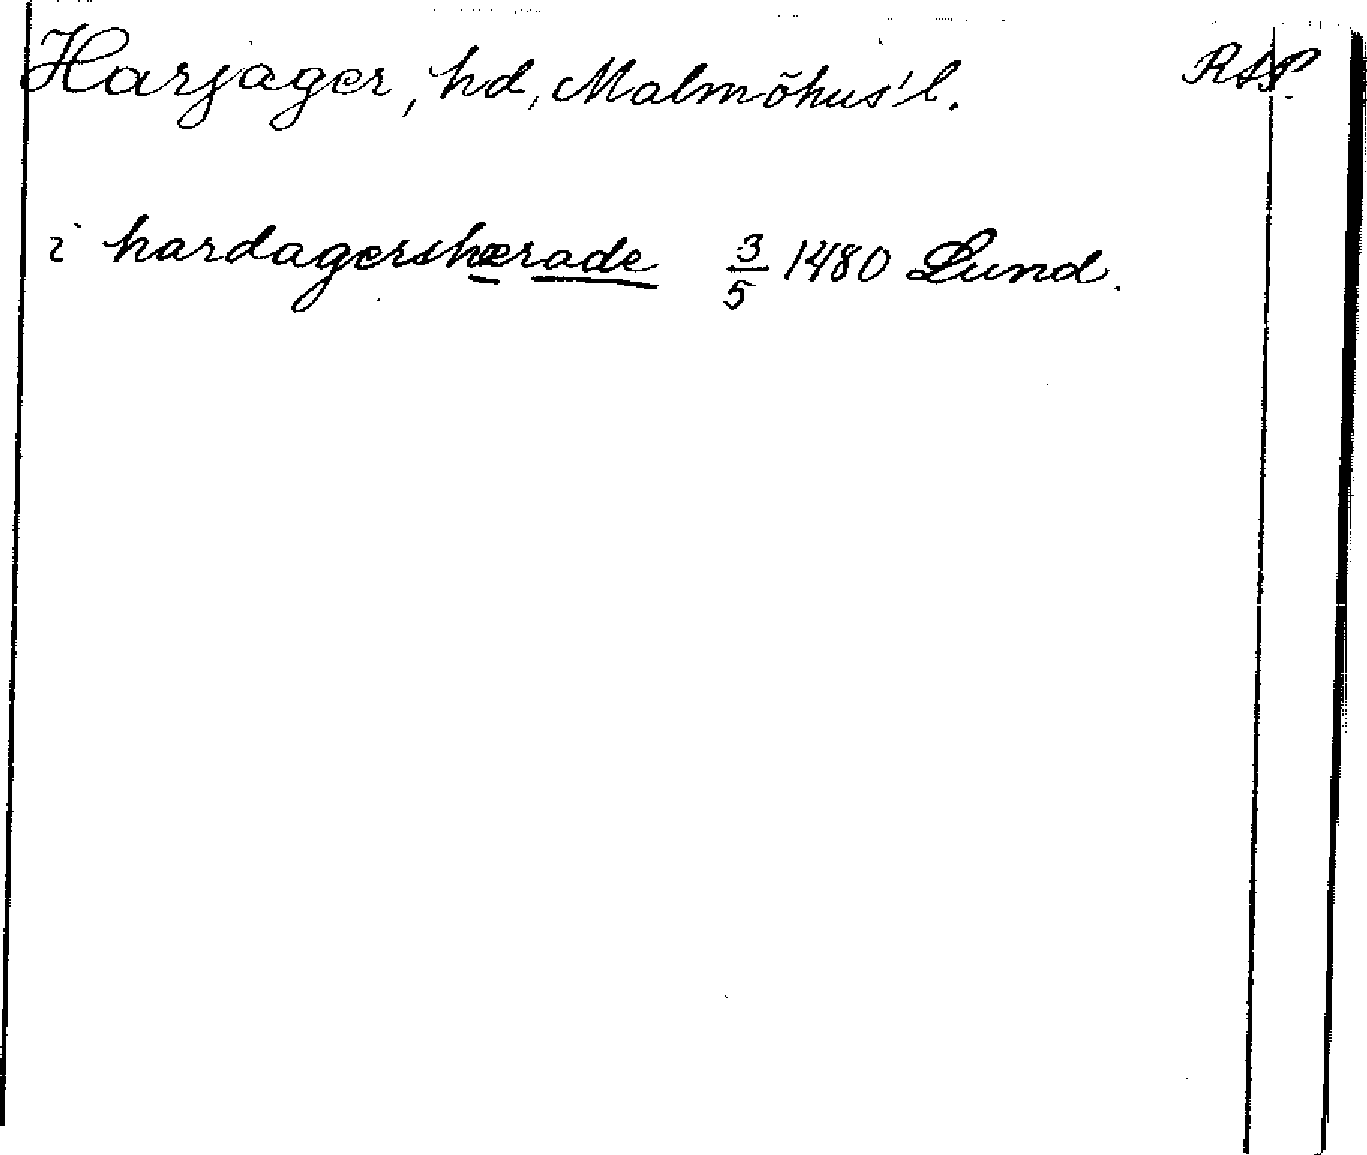 Harjager, hd, Malmöhus l. RAP.
i hardagershærade 3/5 1480 Lund.